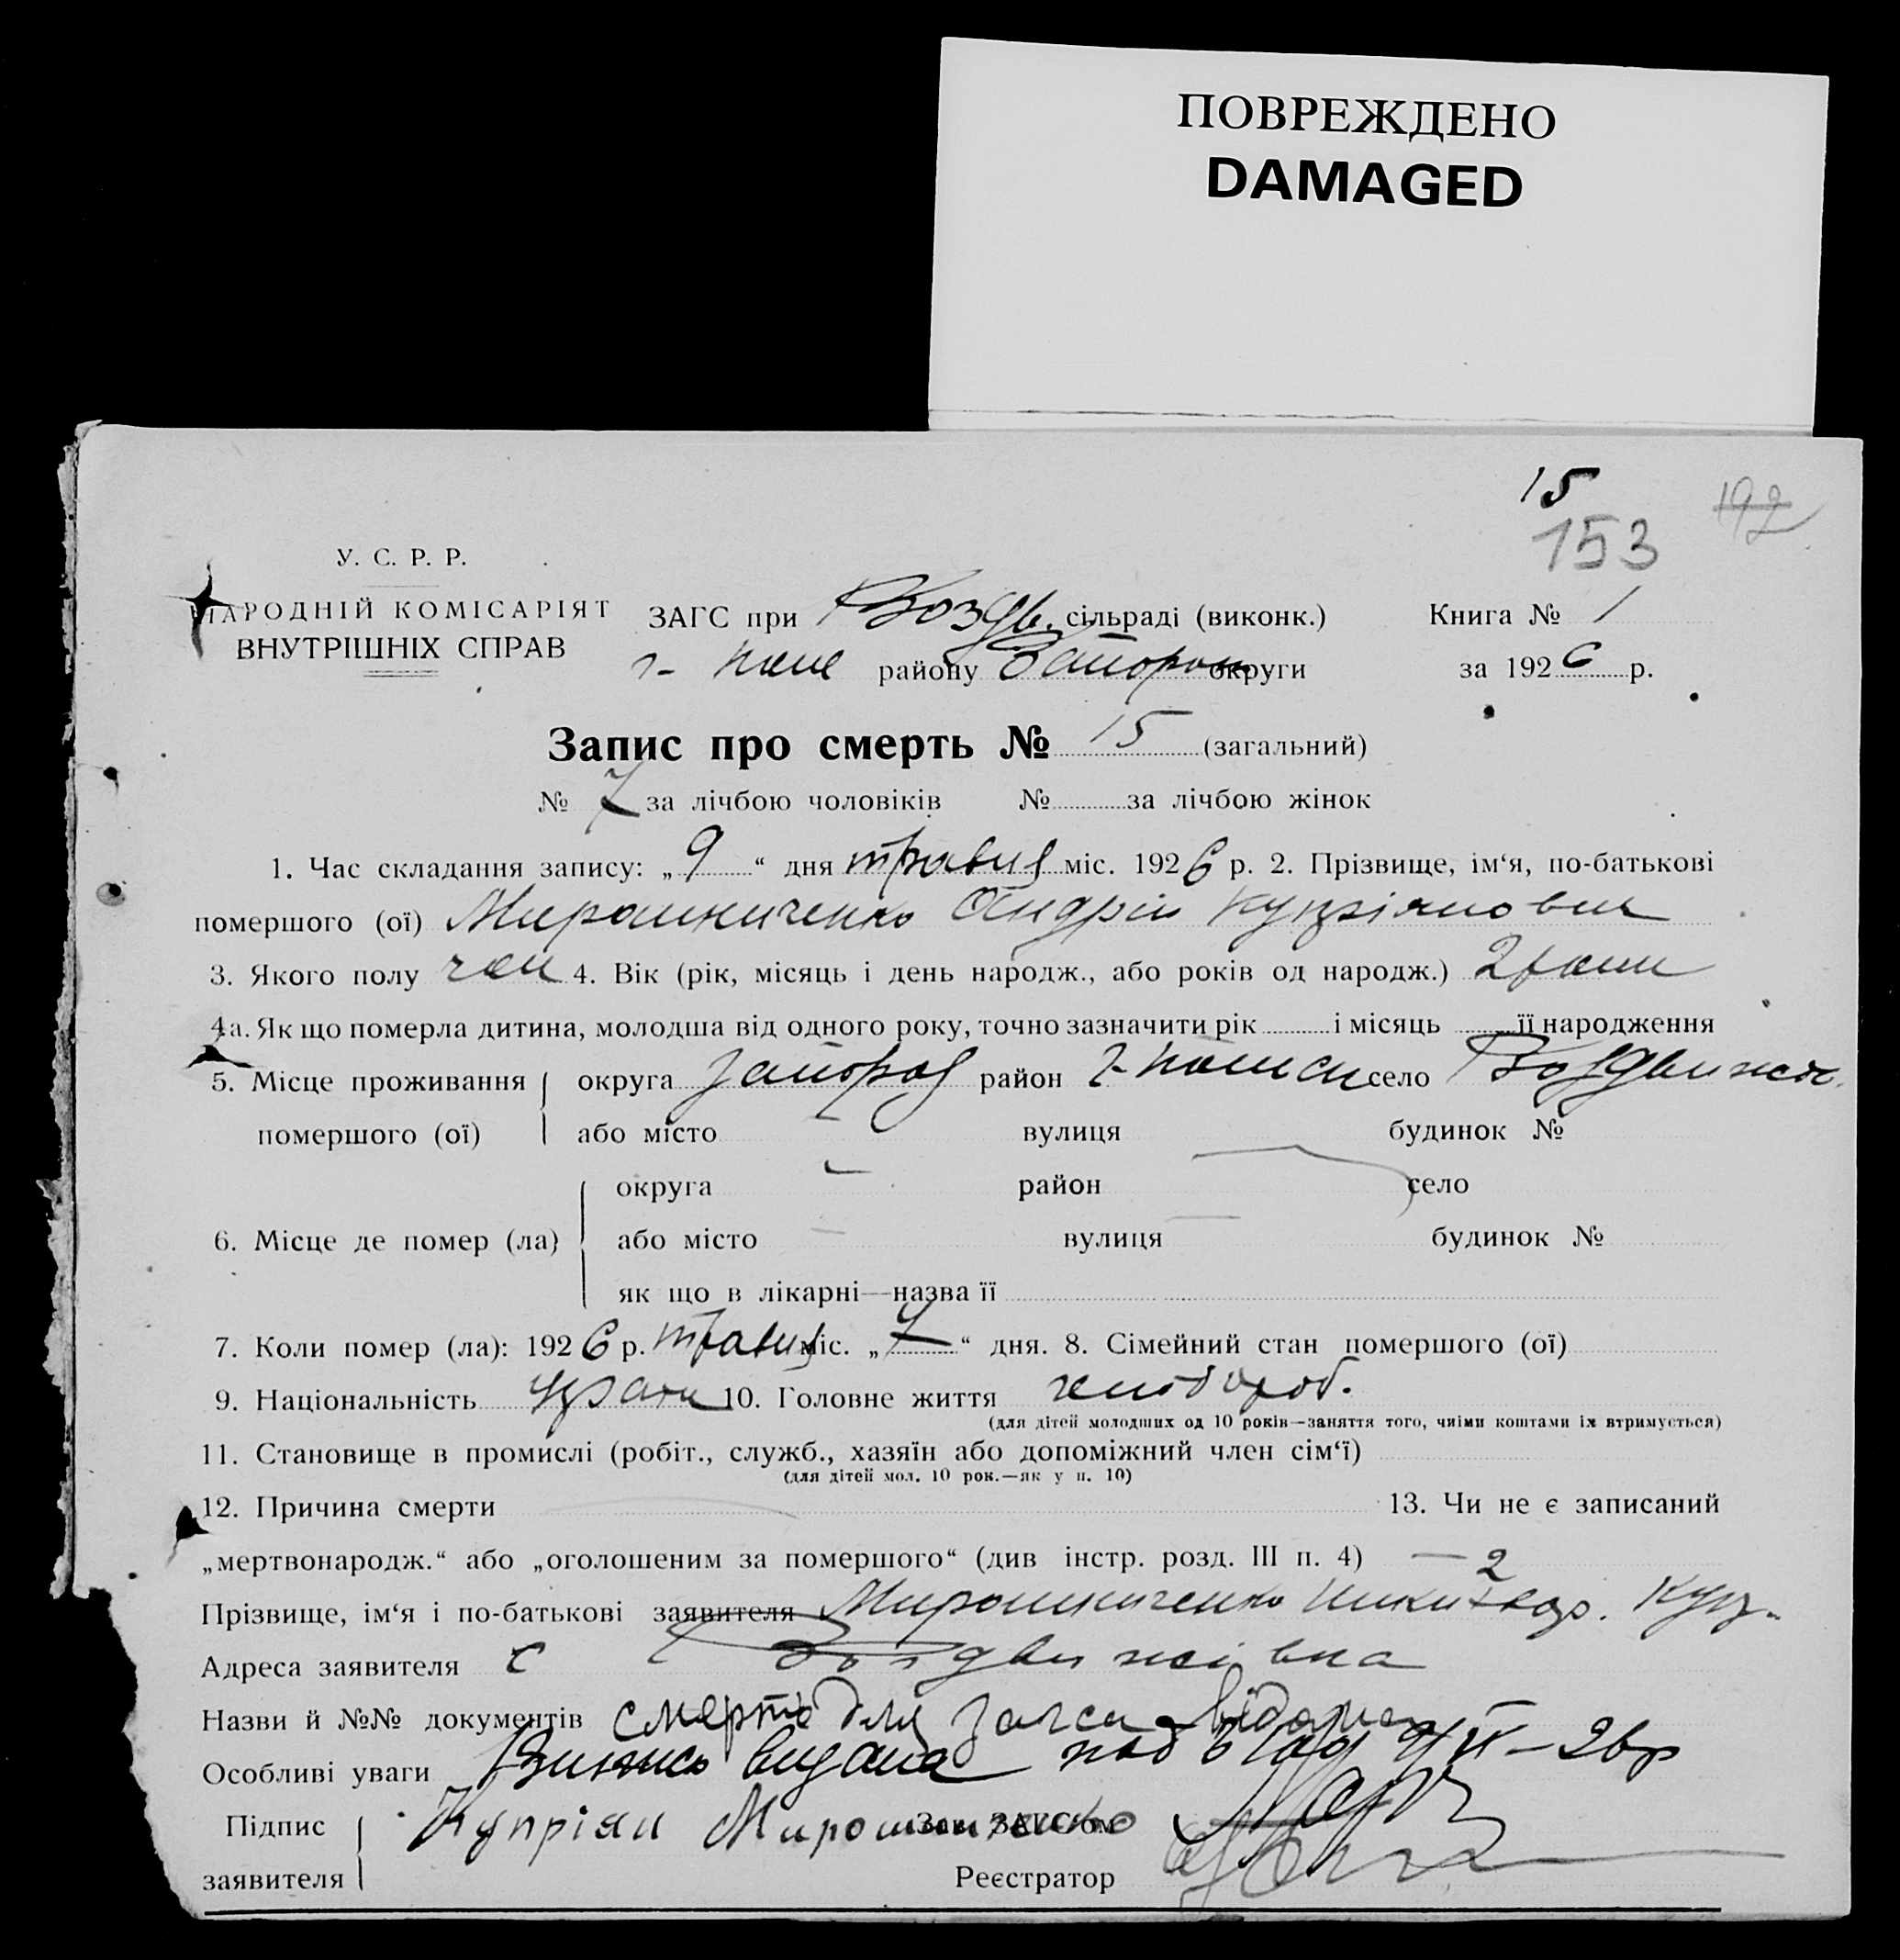 ПОВРЕЖДЕНО
DAMAGED
15
153
192
У. С. Р. Р.
НАРОДНІЙ КОМІСАРІЯТ
ВНУТРІШНІХ СПРАВ
ЗАГС при Воздв. сільраді (виконк.) Книга № 1
району Запорож округи за 1926 р.
Запис про смерть № 15 (загальний)
№ 7 за лічбою чоловіків № за лічбою жінок
1. Час складання запису: „9“ дня травня міс. 1926 р. 2. Прізвище, ім‘я, по-батькові
помершого (ої) Мирошниченко Андрій Купріянович
3. Якого полу чол 4. Вік (рік, місяць і день народж., або років од народж.) 2
4а. Як що померла дитина, молодша від одного року, точно зазначити рік і місяць її народження
5. Місце проживання округа Запорож район село Воздвиженк.
помершого (ої) або місто вулиця будинок №
округа район село
6. Місце де помер (ла) або місто вулиця будинок №
як що в лікарні—назва її
7. Коли помер (ла): 1926 р. травня міс. „7“ дня. 8. Сімейний стан помершого (ої)
9. Національність Украін 10. Головне життя хлібороб.
(для дітей молодших од 10 років—заняття того, чиїми коштами їх втримується)
11. Становище в промислі (робіт., служб., хазяїн або допоміжний член сім‘ї)
(для дітей мол. 10 рок.—як у п. 10)
12. Причина смерти 13. Чи не є записаний
„мертвонародж.“ або „оголошеним за помершого“ (див інстр. розд. III п. 4) — 2
Прізвище, ім‘я і по-батькові заявителя Мирошниченко Купр.
Адреса заявителя с Воздвижівка
Назви й №№ документів смерть для загса відома
Особливі уваги Випись видана 26 р
Підпис Купріян Мирошниченко Зав. ЗАГС‘ом
заявителя Реєстратор